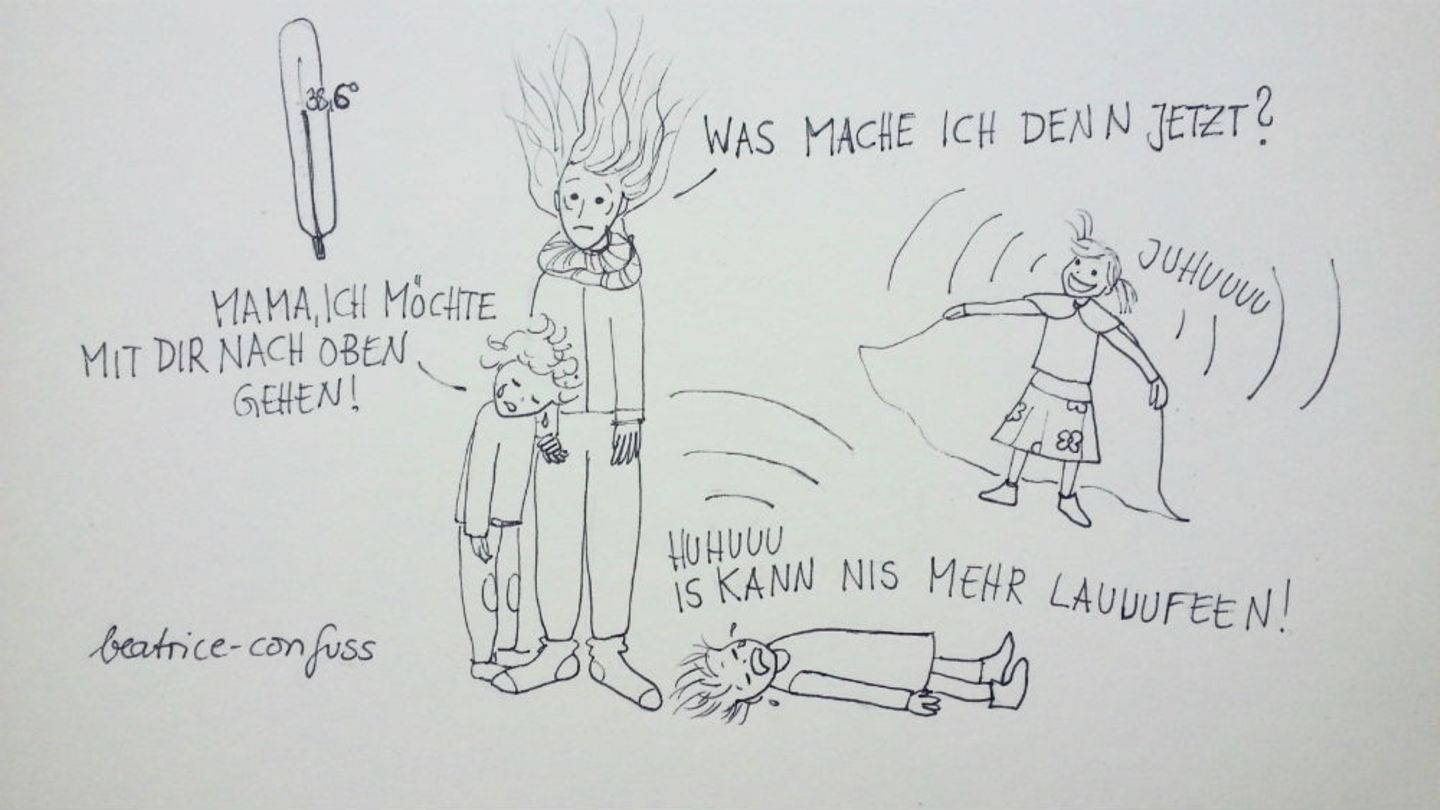 38,6°
WAS MACHE ICH DENN JETZT?
JUHUUUU
MAMA, ICH MÖCHTE
MIT DIR NACH OBEN
GEHEN!
HUHUUU
IS KANN NIS MEHR LAUUUFEEN!
beatrice-confuss